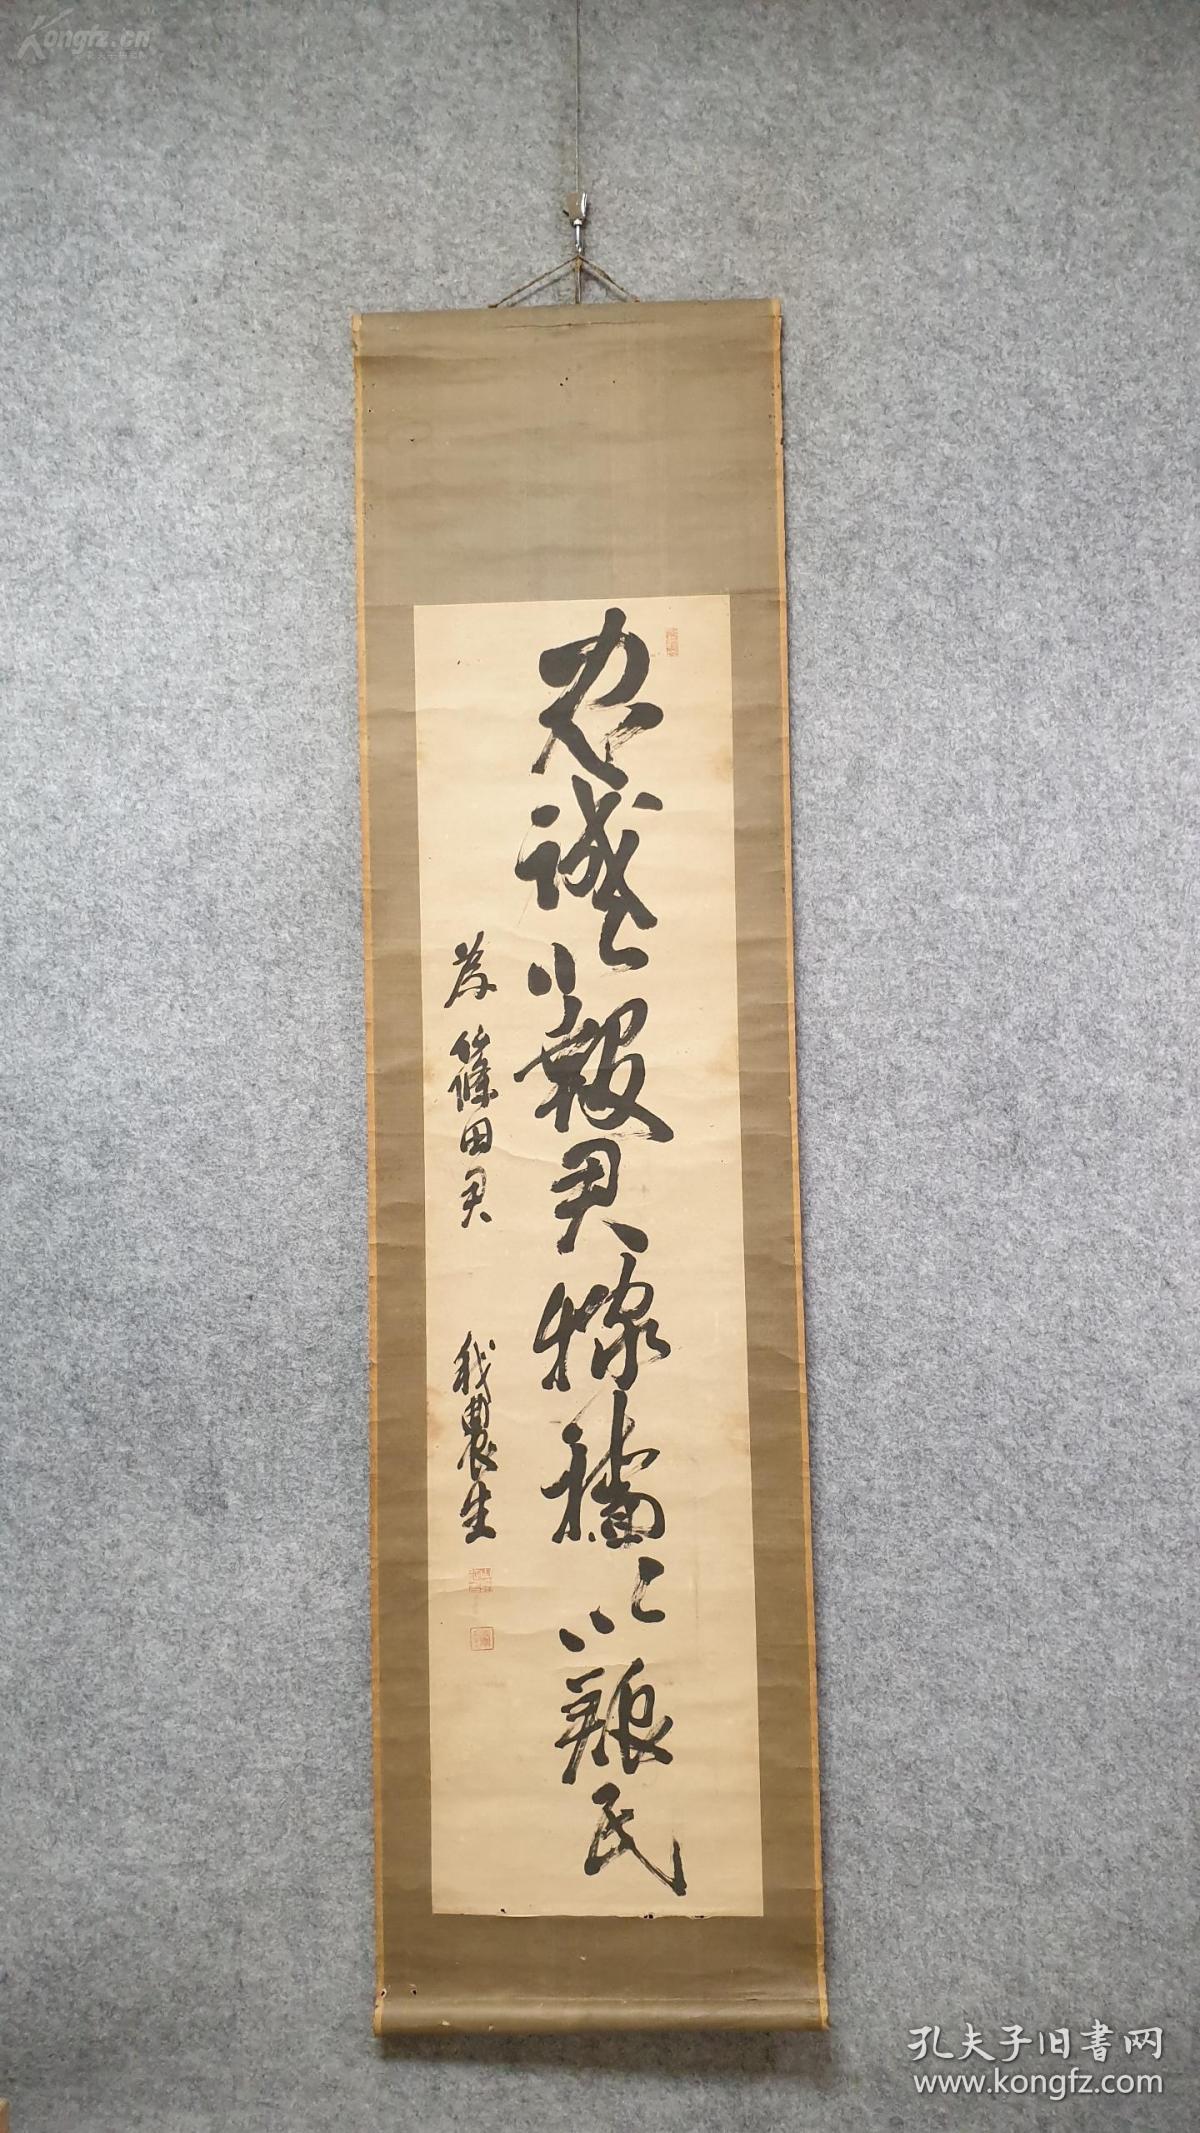 Kongfz.cn
忠誠以報君稼穡以粮民
為篠田君 我農生
孔夫子旧書网
www.kongfz.com